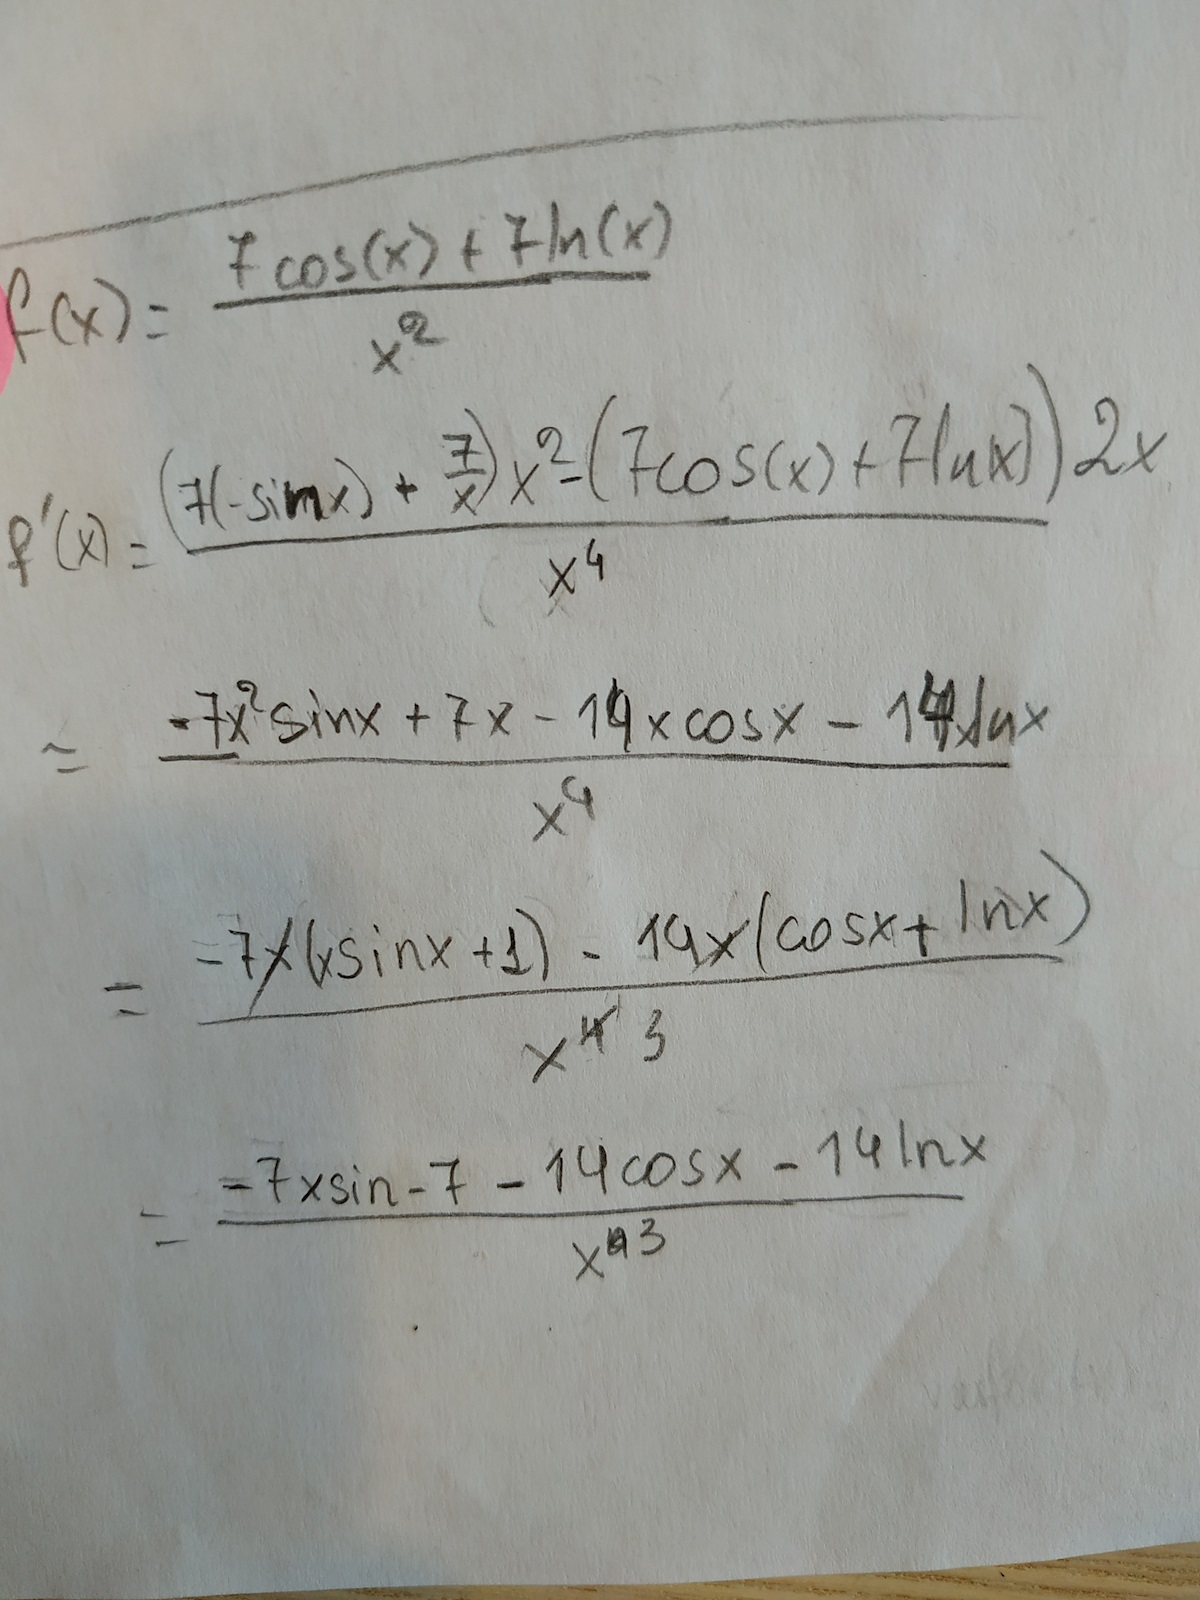 f(x) = (7cos(x) + 7ln(x)) / x²
f'(x) = ((7(-sinx) + 7/x)x² - (7cos(x) + 7ln(x))2x) / x⁴
= (-7x²sinx + 7x - 14xcosx - 14xlnx) / x⁴
= (-7x(xsinx + 1) - 14x(cosx + lnx)) / x⁴ 3
= (-7xsin - 7 - 14cosx - 14lnx) / x³